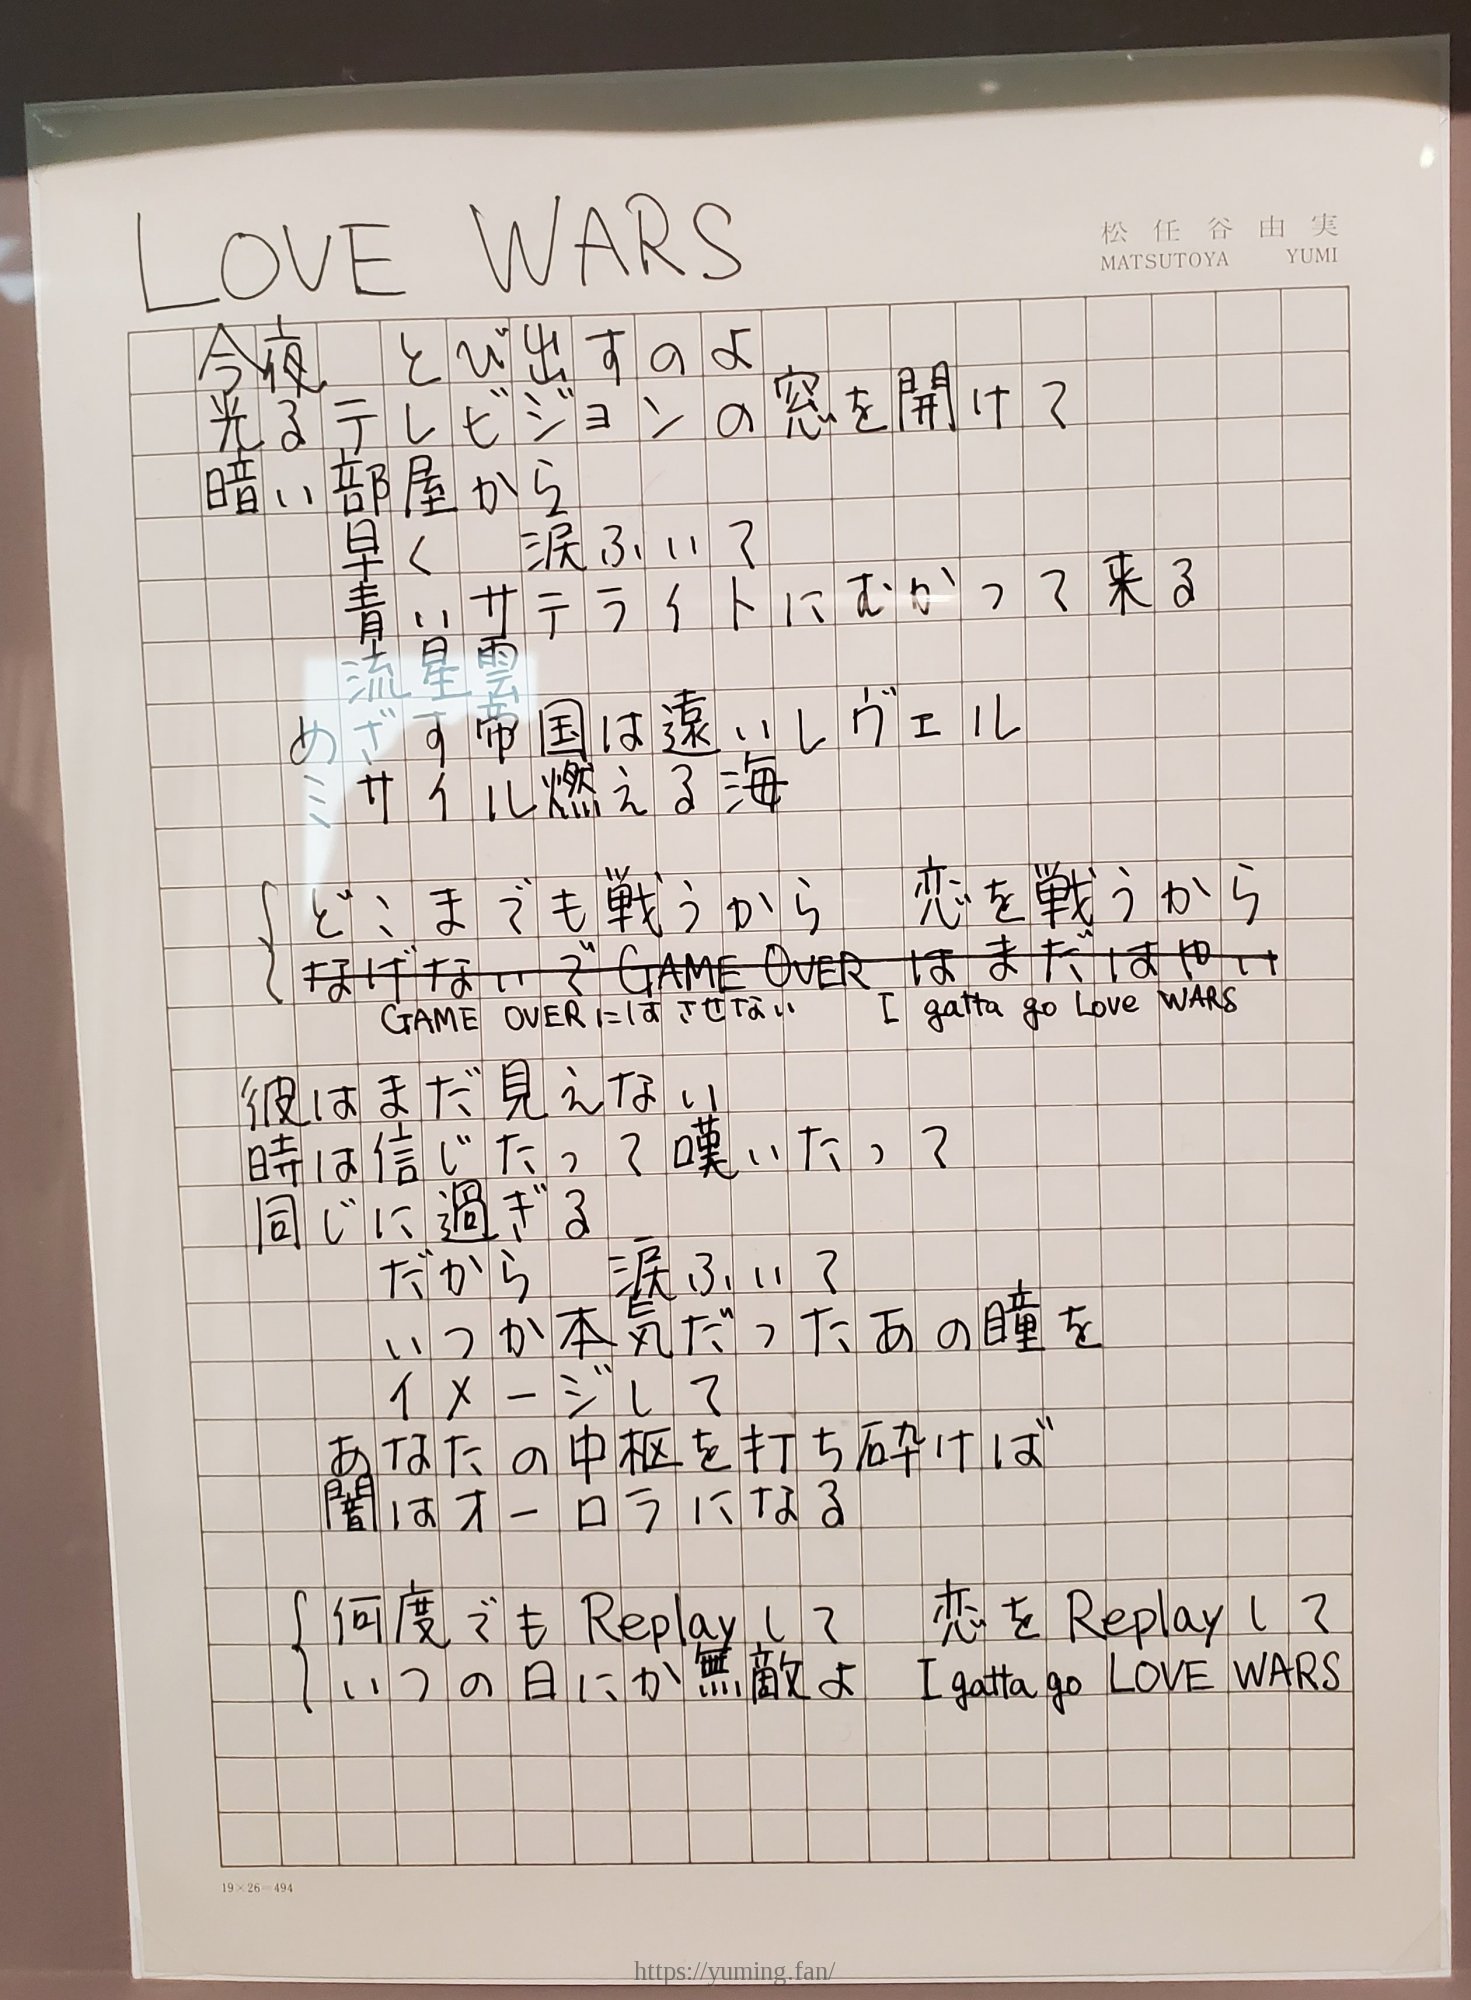 LOVE WARS
松任谷由実
MATSUTOYA YUMI
今夜 とび出すのよ
光るテレビジョンの窓を開けて
暗い部屋から
早く 涙ふいて
青いサテライトにむかって来る
流星雲
めざす帝国は遠いレヴェル
ミサイル燃える海
どこまでも戦うから 恋を戦うから
なげないで GAME OVER はまだはやい
GAME OVERにはさせない I gatta go Love WARS
彼はまだ見えない
時は信じたって嘆いたって
同じに過ぎる
だから 涙ふいて
いつか本気だったあの瞳を
イメージして
あなたの中枢を打ち砕けば
闇はオーロラになる
何度でも Replayして 恋を Replayして
いつの日にか無敵よ I gatta go LOVE WARS
19×26=494
https://yuming.fan/